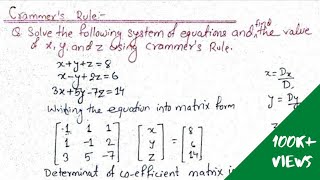 Crammer's Rule:-
Q. Solve the following system of equations and find the value
of x, y, and z using Crammer's Rule.
x+y+z=8
x-y+2z=6
3x+5y-7z=14
x = Dx/D
y = Dy
Writing the equation into matrix form
[1 1 1] [x] [8]
[1 -1 2] [y] = [6]
[3 5 -7] [z] [14]
Determinat of co-efficient matrix is
100K+
VIEWS